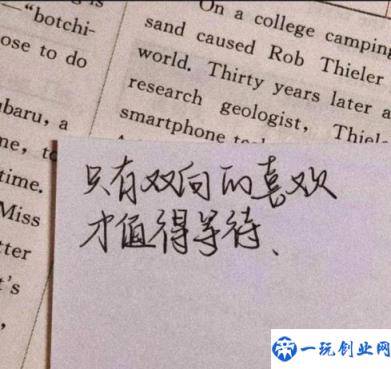 is
—"botchi-
ose to do
ubaru, a
me, to
time.
Miss
tter
t's
On a college camping
sand caused Rob Thieler
world. Thirty years later a
research geologist, Thiele
smartphone
只有双向的喜欢
才值得等待、
一玩创业网